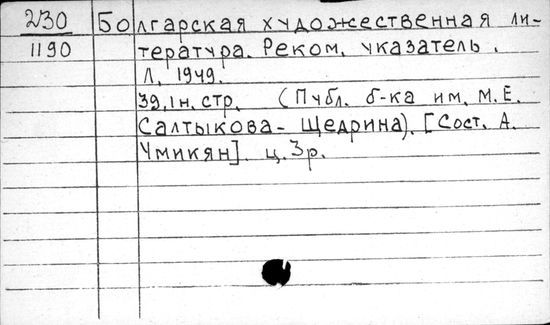 230 Болгарская художественная ли-
1190 тература. Реком. указатель.
Л. 1949.
39, 1н. стр. (Публ. б-ка им. М. Е.
Салтыкова-Щедрина). [Сост. А.
Чмикян]. ц. 3 р.